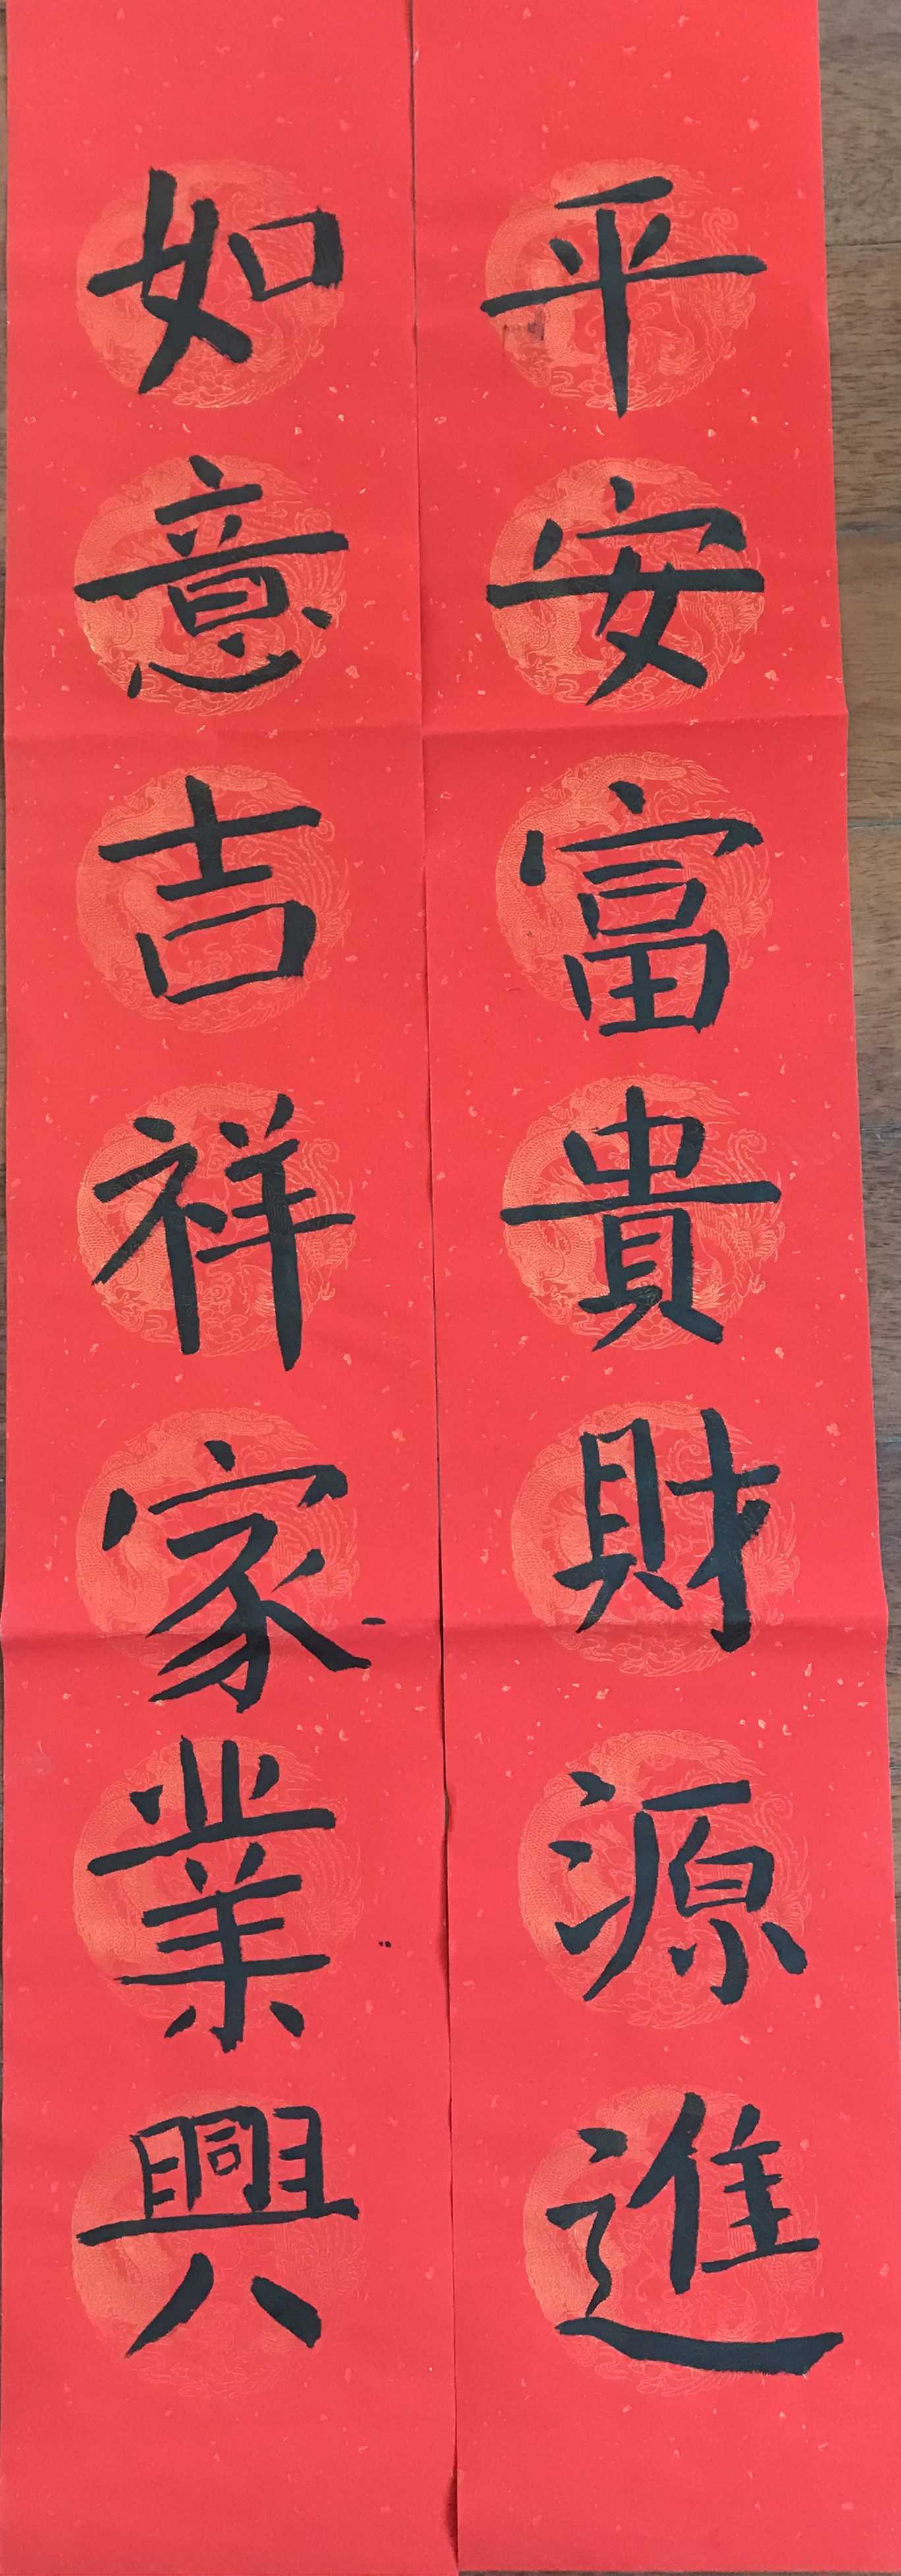 平安富貴財源進
如意吉祥家業興